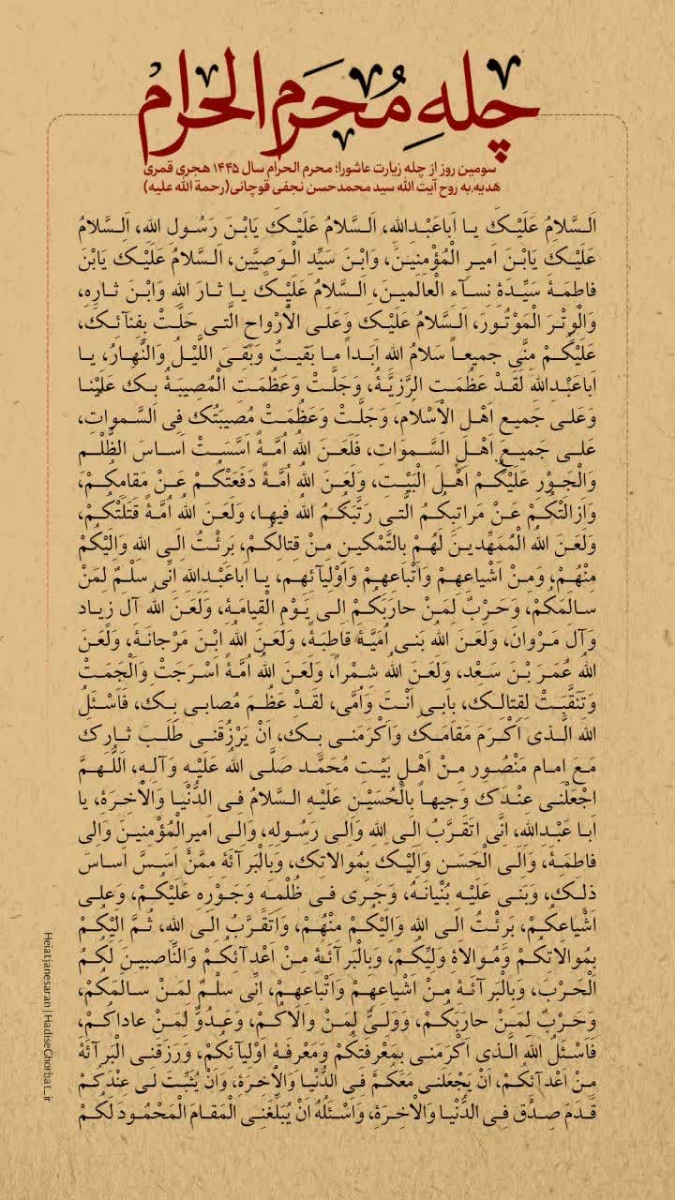 چله مُحَرم الحرام
سومین روز از چله زیارت عاشورا؛ محرم الحرام سال ۱۴۴۵ هجری قمری
هدیه به روح آیت الله سید محمدحسن نجفی قوچانی(رحمة الله علیه)
اَلسَّلامُ عَلَیْکَ یا اَباعَبْدِاللهِ، اَلسَّلامُ عَلَیْکَ یَابْنَ رَسُولِ اللهِ، اَلسَّلامُ
عَلَیْکَ یَابْنَ اَمیرِ الْمُؤْمِنینَ، وَابْنَ سَیِّدِ الْوَصِیّینَ، اَلسَّلامُ عَلَیْکَ یَابْنَ
فاطِمَةَ سَیِّدَةِ نِسآءِ الْعالَمینَ، اَلسَّلامُ عَلَیْکَ یا ثارَ اللهِ وَابْنَ ثارِهِ،
وَالْوِتْرَ الْمَوْتُورَ، اَلسَّلامُ عَلَیْکَ وَعَلَی الْأَرْواحِ الَّتی حَلَّتْ بِفِنآئِکَ،
عَلَیْکُمْ مِنّی جَمیعاً سَلامُ اللهِ اَبَداً ما بَقیتُ وَبَقِیَ اللَّیْلُ وَالنَّهارُ، یا
اَباعَبْدِاللهِ لَقَدْ عَظُمَتِ الرَّزِیَّةُ، وَجَلَّتْ وَعَظُمَتِ الْمُصیبَةُ بِکَ عَلَیْنا
وَعَلی جَمیعِ اَهْلِ الْاِسْلامِ، وَجَلَّتْ وَعَظُمَتْ مُصیبَتُکَ فِی السَّمواتِ،
عَلی جَمیعِ اَهْلِ السَّمواتِ، فَلَعَنَ اللهُ اُمَّةً اَسَّسَتْ اَساسَ الظُّلْمِ
وَالْجَوْرِ عَلَیْکُمْ اَهْلَ الْبَیْتِ، وَلَعَنَ اللهُ اُمَّةً دَفَعَتْکُمْ عَنْ مَقامِکُمْ،
وَاَزالَتْکُمْ عَنْ مَراتِبِکُمُ الَّتی رَتَّبَکُمُ اللهُ فیها، وَلَعَنَ اللهُ اُمَّةً قَتَلَتْکُمْ،
وَلَعَنَ اللهُ الْمُمَهِّدینَ لَهُمْ بِالتَّمْکینِ مِنْ قِتالِکُمْ، بَرِئْتُ اِلَی اللهِ وَاِلَیْکُمْ
مِنْهُمْ، وَمِنْ اَشْیاعِهِمْ وَاَتْباعِهِمْ وَاَوْلِیآئِهِم، یا اَباعَبْدِاللهِ اِنّی سِلْمٌ لِمَنْ
سالَمَکُمْ، وَحَرْبٌ لِمَنْ حارَبَکُمْ اِلی یَوْمِ الْقِیامَةِ، وَلَعَنَ اللهُ آلَ زِیاد
وَآلَ مَرْوانَ، وَلَعَنَ اللهُ بَنی اُمَیَّةَ قاطِبَةً، وَلَعَنَ اللهُ ابْنَ مَرْجانَةَ، وَلَعَنَ
اللهُ عُمَرَ بْنَ سَعْد، وَلَعَنَ اللهُ شِمْراً، وَلَعَنَ اللهُ اُمَّةً اَسْرَجَتْ وَاَلْجَمَتْ
وَتَنَقَّبَتْ لِقِتالِکَ، بِاَبی اَنْتَ وَاُمّی، لَقَدْ عَظُمَ مُصابی بِکَ، فَاَسْئَلُ
اللهَ الَّذی اَکْرَمَ مَقامَکَ وَاَکْرَمَنی بِکَ، اَنْ یَرْزُقَنی طَلَبَ ثارِکَ
مَعَ اِمام مَنْصُور مِنْ اَهْلِ بَیْتِ مُحَمَّد صَلَّی اللهُ عَلَیْهِ وَآلِهِ، اَللّهُمَّ
اجْعَلْنی عِنْدَکَ وَجیهاً بِالْحُسَیْنِ عَلَیْهِ السَّلامُ فِی الدُّنْیا وَالْأخِرَةِ، یا
اَبا عَبْدِاللهِ، اِنّی اَتَقَرَّبُ اِلی اللهِ وَاِلی رَسُولِهِ، وَاِلی امیرِالْمُؤْمِنینَ وَاِلی
فاطِمَةَ، وَاِلَی الْحَسَنِ وَاِلَیْکَ بِمُوالاتِکَ، وَبِالْبَرآئَةِ مِمَّنْ اَسَسَّ اَساسَ
ذلِکَ، وَبَنی عَلَیْهِ بُنْیانَهُ، وَجَری فی ظُلْمِهِ وَجَوْرِهِ عَلَیْکُمْ، وَعَلی
اَشْیاعِکُمْ، بَرِئْتُ اِلَی اللهِ وَاِلَیْکُمْ مِنْهُمْ، وَاَتَقَرَّبُ اِلَی اللهِ، ثُمَّ اِلَیْکُمْ
بِمُوالاتِکُمْ وَمُوالاةِ وَلِیِّکُمْ، وَبِالْبَرآئَةِ مِنْ اَعْدآئِکُمْ وَالنّاصِبینَ لَکُمُ
الْحَرْبَ، وَبِالْبَرآئَةِ مِنْ اَشْیاعِهِمْ وَاَتْباعِهِمْ، اِنّی سِلْمٌ لِمَنْ سالَمَکُمْ،
وَحَرْبٌ لِمَنْ حارَبَکُمْ، وَوَلِیٌّ لِمَنْ والاکُمْ، وَعَدُوٌّ لِمَنْ عاداکُمْ،
فَاَسْئَلُ اللهَ الَّذی اَکْرَمَنی بِمَعْرِفَتِکُمْ وَمَعْرِفَةِ اَوْلِیآئِکُمْ، وَرَزَقَنِی الْبَرآئَةَ
مِنْ اَعْدآئِکُمْ، اَنْ یَجْعَلَنی مَعَکُمْ فِی الدُّنْیا وَالْأخِرَةِ، وَاَنْ یُثَبِّتَ لی عِنْدَکُمْ
قَدَمَ صِدْق فِی الدُّنْیا وَالْأخِرَةِ، وَاَسْئَلُهُ اَنْ یُبَلِّغَنِی الْمَقامَ الْمَحْمُودَ لَکُمْ
Heiatjanesaran | HadiseGhorbat_ir